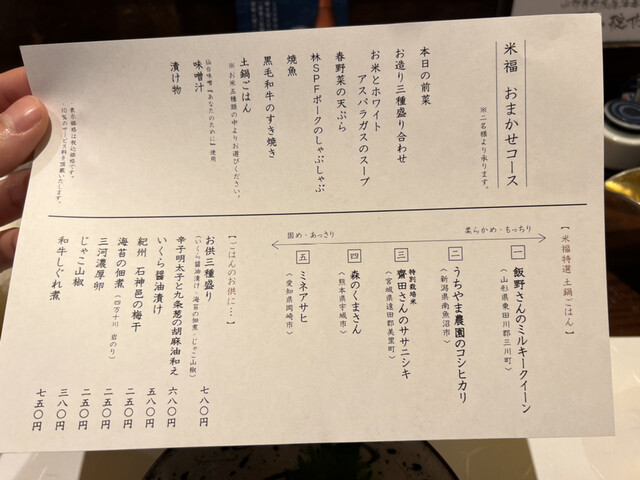 米福 おまかせコース
※二名様より承ります。
本日の前菜
お造り三種盛り合わせ
お米とホワイト
アスパラガスのスープ
春野菜の天ぷら
林SPFポークのしゃぶしゃぶ
焼魚
黒毛和牛のすき焼き
土鍋ごはん
※お米五種類の中よりお選びください。
味噌汁
仙台味噌『あなたのために』使用
漬け物
表示価格は税込価格です。
10%のサービス料を頂戴いたします。
【米福特選 土鍋ごはん】
柔らかめ・もっちり
固め・あっさり
一 飯野さんのミルキークイーン
(山形県東田川郡三川町)
二 うちやま農園のコシヒカリ
(新潟県南魚沼市)
三 特別栽培米 齋田さんのササニシキ
(宮城県遠田郡美里町)
四 森のくまさん
(熊本県宇城市)
五 ミネアサヒ
(愛知県岡崎市)
【ごはんのお供に…】
お供三種盛り 七八〇円
(いくら醤油漬け・海苔の佃煮・じゃこ山椒)
辛子明太子と九条葱の胡麻油和え 六八〇円
いくら醤油漬け 五八〇円
紀州 石神邑の梅干 二五〇円
海苔の佃煮(四万十川 岩のり) 二五〇円
三河濃厚卵 二五〇円
じゃこ山椒 三八〇円
和牛しぐれ煮 七五〇円